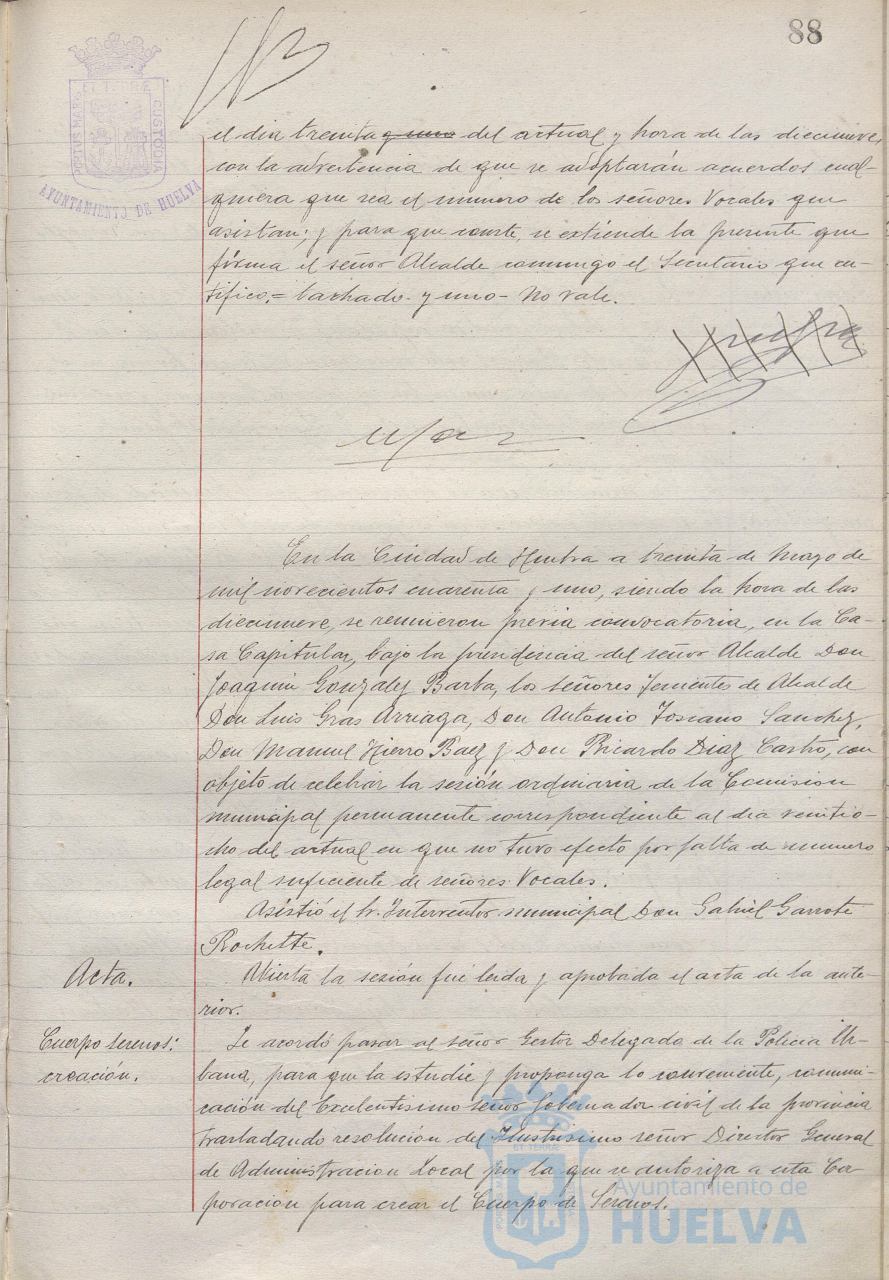 88
PORTUS MARIS ET TERRAE CUSTODIA
AYUNTAMIENTO DE HUELVA
el dia treinta y uno del actual y hora de las diecinueve,
con la advertencia de que se adoptarán acuerdos cual-
quiera que sea el numero de los señores Vocales que
asistan; y para que conste, se extiende la presente que
firma el señor Alcalde conmigo el Secretario que cer-
tifico.= tachado- y uno- No vale.
En la Ciudad de Huelva a treinta de Mayo de
mil novecientos cuarenta y uno, siendo la hora de las
diecinueve, se reunieron previa convocatoria, en la Ca-
sa Capitular, bajo la presidencia del señor Alcalde Don
Joaquin Gonzalez Barba, los señores Tenientes de Alcalde
Don Luis Gras Arriaga, Don Antonio Toscano Sanchez,
Don Manuel Hierro Baez y Don Ricardo Diaz Castro, con
objeto de celebrar la sesión ordinaria de la Comision
municipal permanente correspondiente al dia veintio-
cho del actual en que no tuvo efecto por falta de numero
legal suficiente de señores Vocales.
Asistió el Sr. Interventor municipal Don Gabriel Garrote
Rochette.
Acta.
Abierta la sesión fué leida y aprobada el acta de la ante-
rior.
Cuerpo serenos:
creación.
Se acordó pasar al señor Gestor Delegado de la Policia Ur-
bana, para que la estudie y proponga lo conveniente, comuni-
cación del Excelentisimo señor Gobernador civil de la provincia
trasladando resolución del Ilustrisimo señor Director General
de Administracion Local por la que se autoriza a esta Cor-
poración para crear el Cuerpo de Serenos.
Ayuntamiento de
HUELVA